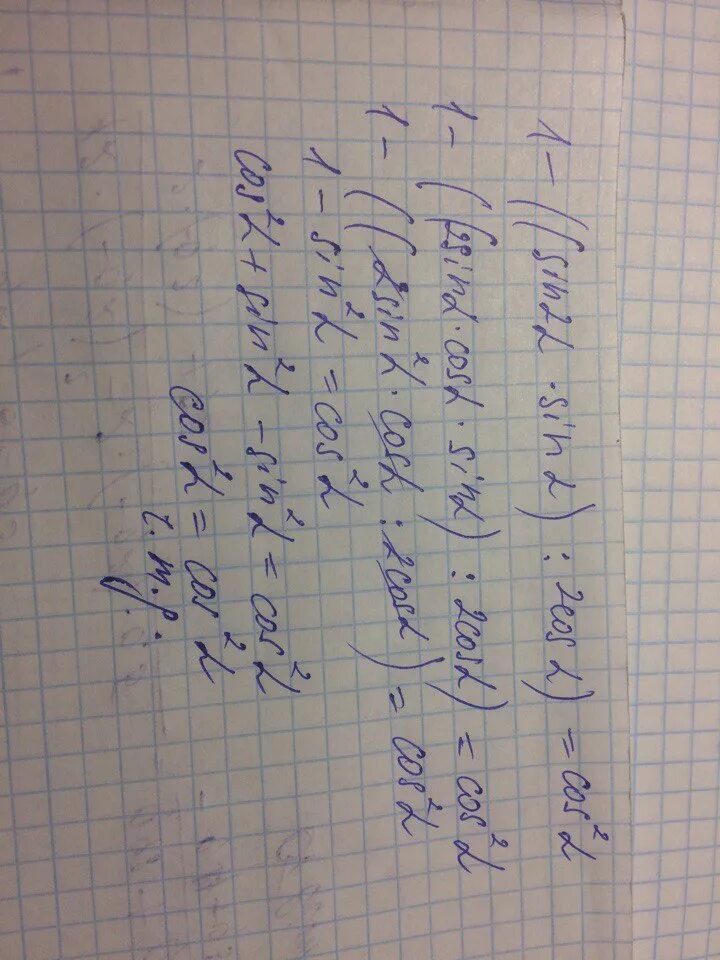 1 - ((sin2α · sin α) : 2cos α) = cos²α
1 - ((2sinα · cosα · sinα) : 2cosα) = cos²α
1 - ((2sin²α · cosα : 2cosα) = cos²α
1 - sin²α = cos²α
cos²α + sin²α - sin²α = cos²α
cos²α = cos²α